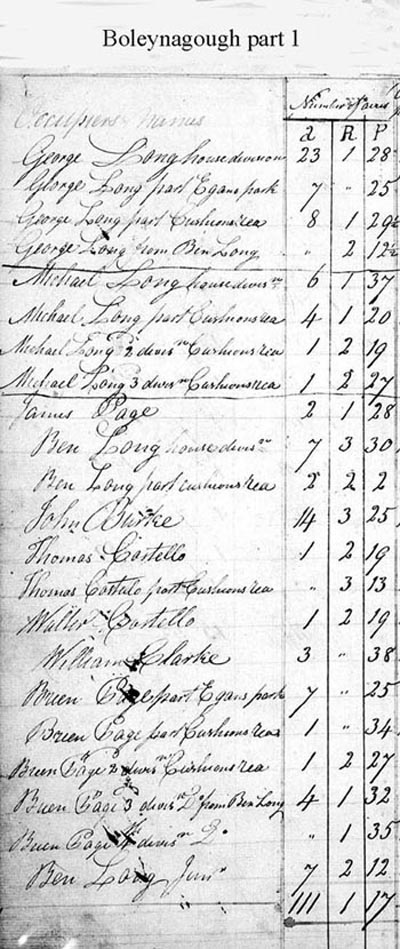 Boleynagough part 1
Number of acres
Occupiers names a R P
George Long house division 23 1 28
George Long part Egans park 7 " 25
George Long part Cushionsrea 8 1 29½
George Long from Ben Long " 2 12½
Michael Long house divisn 6 1 37
Michael Long part Cushionsrea 4 1 20
Michael Long 2 divisn Cushionsrea 1 2 19
Michael Long 3 divisn Cushionsrea 1 2 27
James Page 2 1 28
Ben Long house divisn 7 3 30
Ben Long part cushionsrea 2 2 2
John Burke 14 3 25
Thomas Costello 1 2 19
Thomas Costelo part Cushionsrea " 3 13
Walter Costello 1 2 19
William Clarke 3 " 38
Brien Page part Egans park 7 " 25
Brien Page part Cushionsrea 1 " 34
Brien Page 2 divisn Cushionsrea 1 2 27
Brien Page 3 divisn Do from Ben Long 4 1 32
Brien Page 4th divisn Do " 1 35
Ben Long Junr 7 2 12
111 1 17